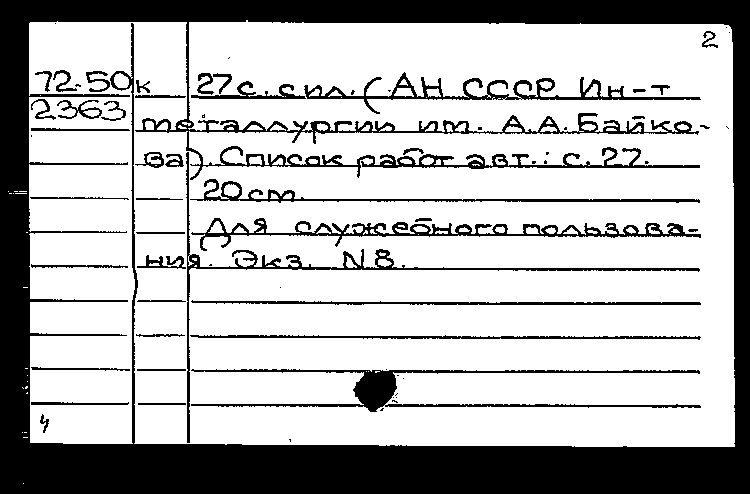 2
72.50к 27с. сил. (АН СССР. Ин-т
2363 металлургии им. А.А. Байко-
ва). Список работ авт.: с. 27.
20 см.
Для служебного пользова-
ния. Экз. N 8.